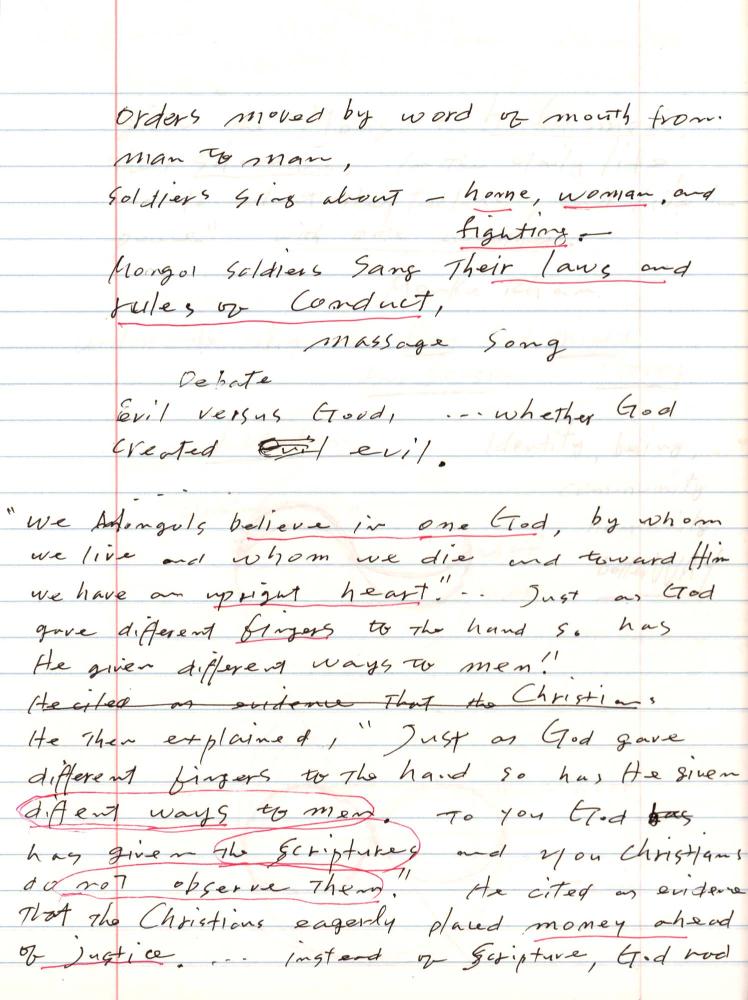 Orders moved by word of mouth from
man to man,
Soldiers sing about – home, woman, and
fighting. –
Mongol soldiers sang Their laws and
rules of Conduct,
massage song
Debate
Evil versus Good, ... whether God
created evil.
"We Mongols believe in one God, by whom
we live and whom we die and toward Him
we have an upright heart." .. Just as God
gave different fingers to the hand so has
He given different ways to men!"
He cited as evidence That the Christians
He Then explained, "Just as God gave
different fingers to The hand so has He given
diffent ways to men. To you God has
has given The Scriptures and you Christians
do not observe Them." He cited as evidence
That the Christians eagerly placed money ahead
of justice. ... instead of Scripture, God had